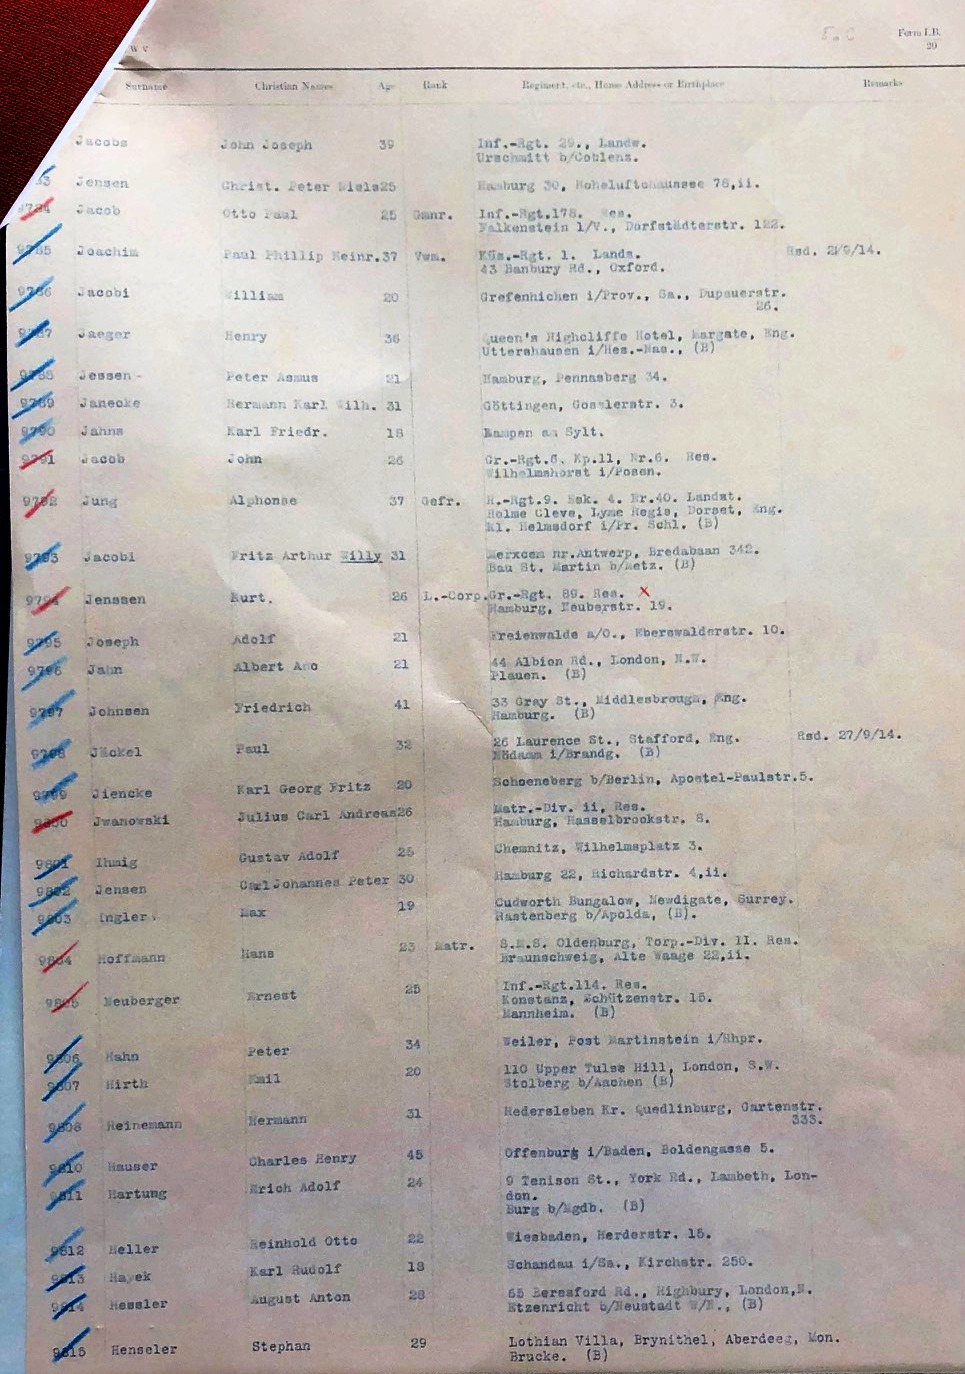 Form I.B.
20
Surname Christian Names Age Rank Regiment, etc., Home Address or Birthplace Remarks
Jacobs John Joseph 39 Inf.-Rgt. 29., Landw.
Urschmitt b/Coblenz.
Jensen Christ. Peter Niels 25 Hamburg 30, Hoheluftchaussee 76,ii.
9784 Jacob Otto Paul 25 Gmnr. Inf.-Rgt.178. Res.
Falkenstein i/V., Dorfstädterstr. 122.
9785 Joachim Paul Phillip Heinr. 37 Vwm. Rgt. 1. Landw. Rsd. 21/9/14.
43 Banbury Rd., Oxford.
9786 Jacobi William 20 Grefenhichen i/Prov., Sa., Dupauerstr.
26.
9787 Jaeger Henry 36 Queen's Highcliffe Hotel, Margate, Eng.
Uttershausen i/Hes.-Nas., (B)
9788 Jessen - Peter Asmus 21 Hamburg, Pennasberg 34.
9789 Janecke Hermann Karl Wilh. 31 Göttingen, Gosslerstr. 3.
9790 Jahns Karl Friedr. 18 Kampen am Sylt.
9791 Jacob John 26 Gr.-Rgt.6. Kp.11, Nr.6. Res.
Wilhelmshorst i/Posen.
9792 Jung Alphonse 37 Gefr. R.-Rgt.9. Esk. 4. Nr.40. Landst.
Holme Cleve, Lyme Regis, Dorset, Eng.
Kl. Helmsdorf i/Pr. Schl. (B)
9793 Jacobi Fritz Arthur Willy 31 Merxcem nr.Antwerp, Bredabaan 342.
Bau St. Martin b/Metz. (B)
9794 Jenssen Kurt. 26 L.-Corp. Gr.-Rgt. 89. Res. X
Hamburg, Neuberstr. 19.
9795 Joseph Adolf 21 Freienwalde a/O., Eberswalderstr. 10.
9796 Jahn Albert Aoo 21 44 Albion Rd., London, N.W.
Plauen. (B)
9797 Johnsen Friedrich 41 33 Gray St., Middlesbrough, Eng.
Hamburg. (B)
9798 Jäckel Paul 32 26 Laurence St., Stafford, Eng. Rsd. 27/9/14.
Nödamm i/Brandg. (B)
9799 Jiencke Karl Georg Fritz 20 Schoeneberg b/Berlin, Apostel-Paulstr.5.
9800 Jwanowski Julius Carl Andreas 26 Matr.-Div. ii, Res.
Hamburg, Hasselbrookstr. 8.
9801 Ihmig Gustav Adolf 25 Chemnitz, Wilhelmsplatz 3.
9802 Jensen Carl Johannes Peter 30 Hamburg 22, Richardstr. 4,ii.
9803 Ingler Max 19 Cudworth Bungalow, Newdigate, Surrey.
Rastenberg b/Apolda, (B).
9804 Hoffmann Hans 23 Matr. S.M.S. Oldenburg, Torp.-Div. II. Res.
Braunschweig, Alte Waage 22,ii.
9805 Neuberger Ernest 25 Inf.-Rgt.114. Res.
Konstanz, Schützenstr. 15.
Mannheim. (B)
9806 Hahn Peter 34 Weiler, Post Martinstein i/Rhpr.
9807 Hirth Emil 20 110 Upper Tulse Hill, London, S.W.
Stolberg b/Aachen (B)
9808 Heinemann Hermann 31 Hedersleben Kr. Quedlinburg, Gartenstr.
333.
9810 Hauser Charles Henry 45 Offenburg i/Baden, Boldengasse 5.
9811 Hartung Erich Adolf 24 9 Tenison St., York Rd., Lambeth, Lon-
don.
Burg b/Mgdb. (B)
9812 Heller Reinhold Otto 22 Wiesbaden, Herderstr. 15.
9813 Hayek Karl Rudolf 18 Schandau i/Sa., Kirchstr. 250.
9814 Hessler August Anton 28 65 Beresford Rd., Highbury, London,N.
Etzenricht b/Neustadt W/N., (B)
9815 Henseler Stephan 29 Lothian Villa, Brynithel, Aberdeeg, Mon.
Brucke. (B)